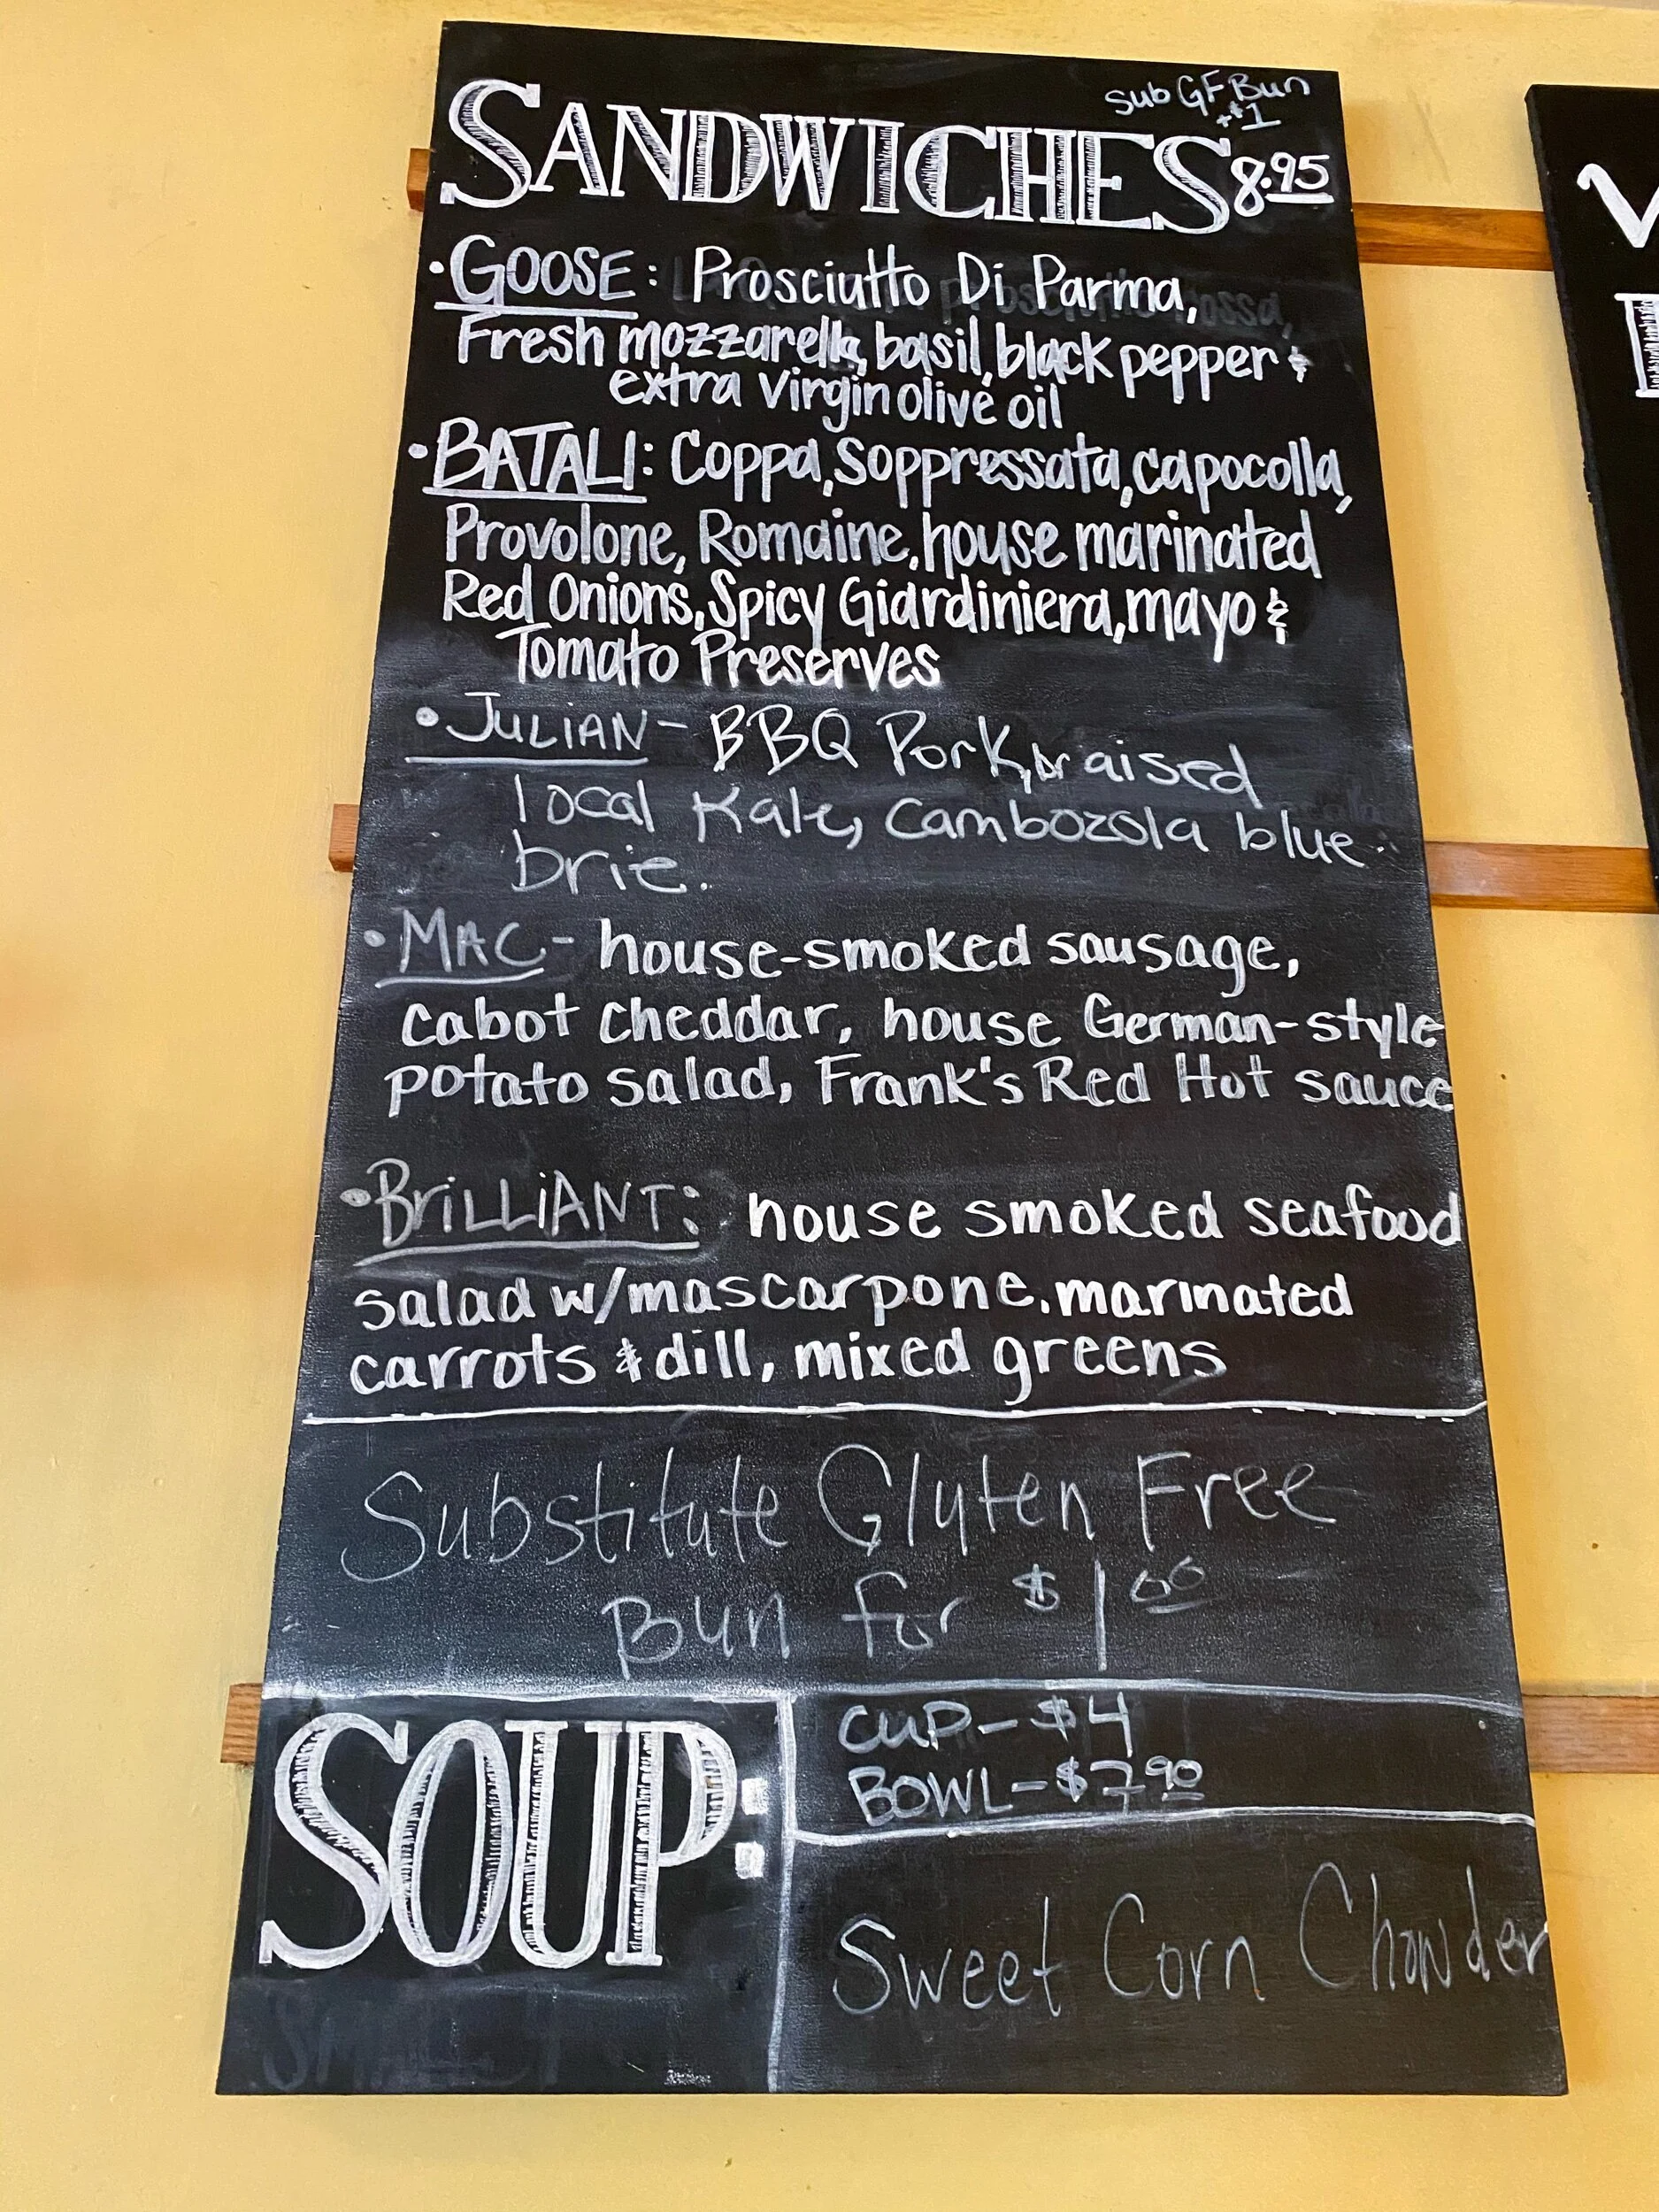 Sub GF Bun
+$1
SANDWICHES 8.95
• GOOSE: Prosciutto Di Parma,
Fresh mozzarella, basil, black pepper &
extra virgin olive oil
• BATALI: Coppa, Soppressata, capocolla,
Provolone, Romaine, house marinated
Red Onions, Spicy Giardiniera, mayo &
Tomato Preserves
• JULIAN- BBQ Pork, braised
local Kale, Cambozola blue
brie.
• MAC- house-smoked sausage,
cabot cheddar, house German-style
potato salad, Frank's Red Hot sauce
• BRILLIANT: house smoked seafood
salad w/mascarpone, marinated
carrots & dill, mixed greens
Substitute Gluten Free
Bun for $1.00
SOUP:
CUP- $4
BOWL- $7.90
Sweet Corn Chowder